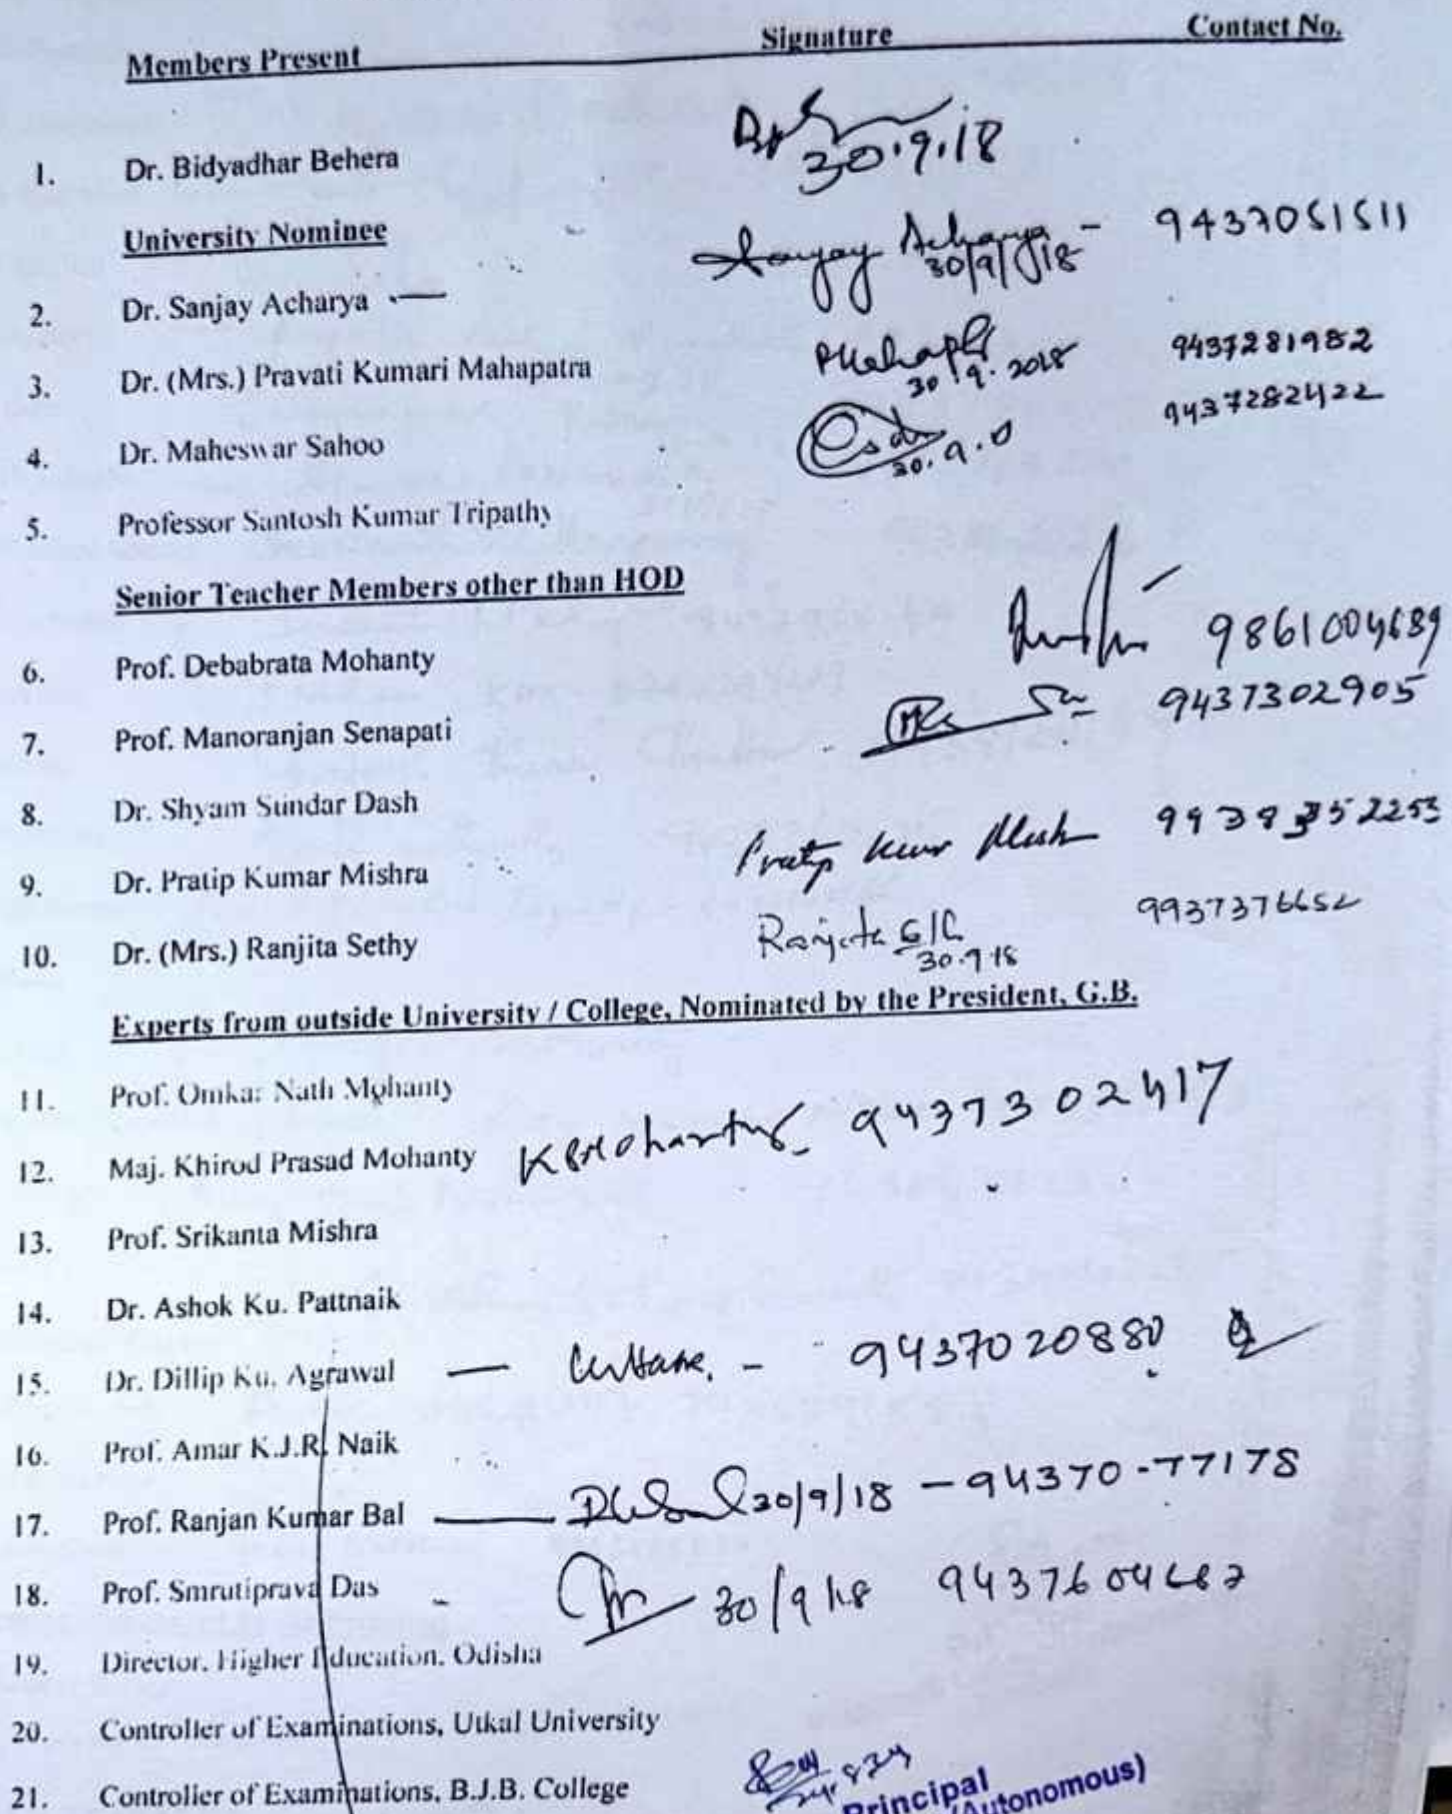 Members Present Signature Contact No.
1. Dr. Bidyadhar Behera 30.9.18
University Nominee
2. Dr. Sanjay Acharya — Sanjay Acharya - 9437051511
30/9/18
3. Dr. (Mrs.) Pravati Kumari Mahapatra 9437281982
30.9.2018
4. Dr. Maheswar Sahoo 9437282422
5. Professor Santosh Kumar Tripathy
Senior Teacher Members other than HOD
6. Prof. Debabrata Mohanty
7. Prof. Manoranjan Senapati 9437302905
8. Dr. Shyam Sundar Dash
9. Dr. Pratip Kumar Mishra
10. Dr. (Mrs.) Ranjita Sethy Ranjita
30.9.18
Experts from outside University / College, Nominated by the President, G.B.
11. Prof. Omkar Nath Mohanty
12. Maj. Khirod Prasad Mohanty 9437302417
13. Prof. Srikanta Mishra
14. Dr. Ashok Ku. Pattnaik
15. Dr. Dillip Ku. Agrawal — - 9437020880
16. Prof. Amar K.J.R. Naik
17. Prof. Ranjan Kumar Bal — 30/9/18 - 94370-77178
18. Prof. Smrutiprava Das - 30/9/18
19. Director, Higher Education, Odisha
20. Controller of Examinations, Utkal University
21. Controller of Examinations, B.J.B. College
Principal
(Autonomous)